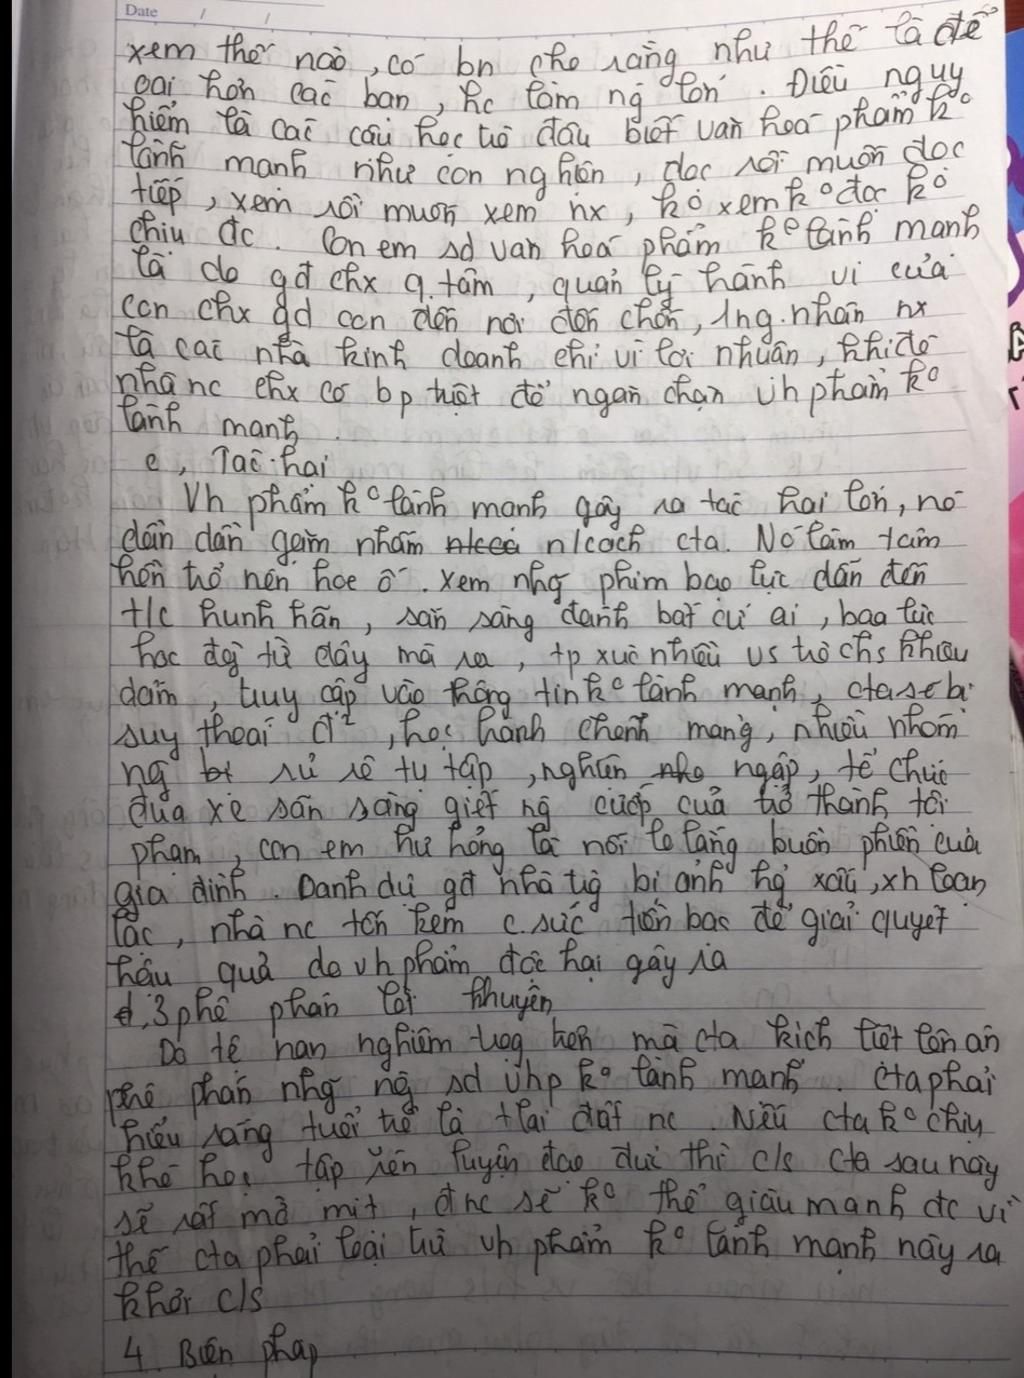 Date / /
xem thế nào, có bn cho rằng như thế là để
oai hơn các bạn, hc làm ng lớn. Điều nguy
hiểm là các cậu học trò đâu biết văn hoá phẩm k°
lành mạnh như con nghiện, đọc rồi muốn đọc
tiếp, xem rồi muốn xem nx, k° xem k° đọc k°
chịu đc. Con em sd văn hoá phẩm k° lành mạnh
là do gđ chx q.tâm, quản lý hành vi của
con chx gd con đến nơi đến chốn, 1 ng.nhân nx
là các nhà kinh doanh chỉ vì lợi nhuận, khi đó
nhà nc chx có bp triệt để ngăn chặn vh phẩm k°
lành mạnh.
c, Tác hại
Vh phẩm k° lành mạnh gây ra tác hại lớn, nó
dần dần gặm nhấm n/cách cta. Nó làm tâm
hồn trở nên hoe ố. Xem nhg phim bạo lực dẫn đến
t/c hung hãn, sẵn sàng đánh bất cứ ai, bạo lực
học đg từ đây mà ra, tp xúc nhiều vs trò chs khiêu
dâm, truy cập vào thông tin k° lành mạnh, cta sẽ bị
suy thoái đ², học hành chểnh mảng, nhiều nhóm
ng bt sử rê tụ tập, nghiện ngập, tổ chức
đua xe sẵn sàng giết ng cướp của trở thành tội
phạm, con em hư hỏng là nỗi lo lắng buồn phiền của
gia đình. Danh dự gđ nhà trg bị ảnh hg xấu, xh loạn
lạc, nhà nc tốn kém c.sức tiền bạc để giải quyết
hậu quả do vh phẩm độc hại gây ra
d.3 phê phán lời khuyên
Do tệ nạn nghiêm trọg hơn mà cta kịch liệt lên án
phê phán nhg ng sd vhp k° lành mạnh. Cta phải
hiểu rằng tuổi trẻ là tlai đất nc. Nếu cta k° chịu
khó học tập rèn luyện đạo đức thì c/s cta sau này
sẽ rất mờ mịt, đnc sẽ k° thể giàu mạnh đc vì
thế cta phải loại trừ vh phẩm k° lành mạnh này ra
khỏi c/s
4 Biện pháp